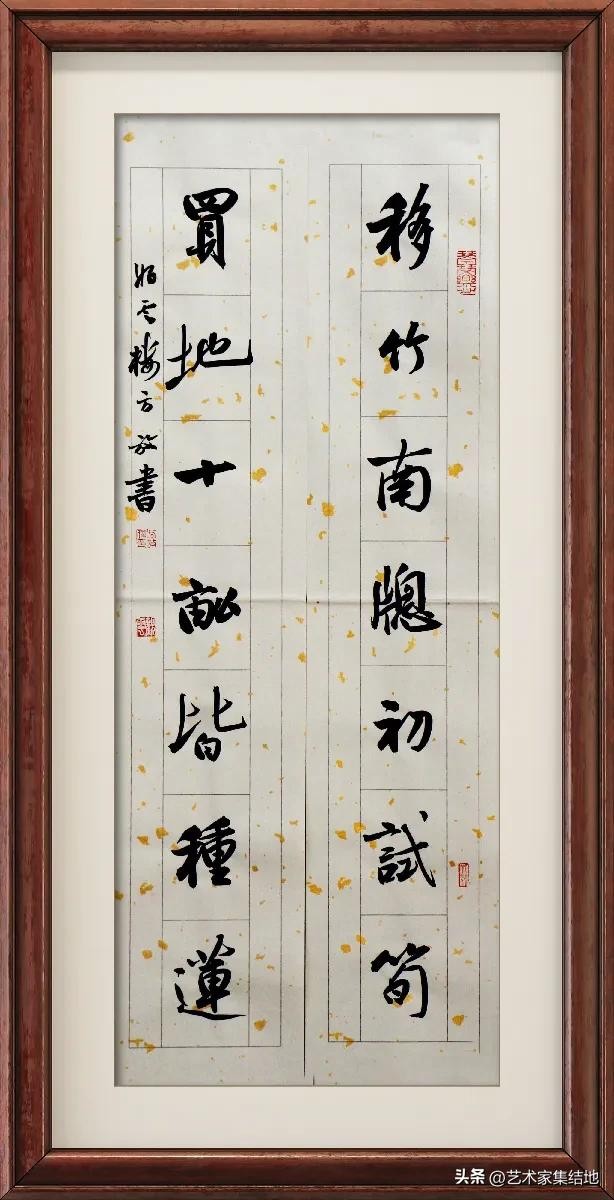 移竹南牕初試筍
買地十畝皆種蓮
云樓方書
头条 @艺术家集结地